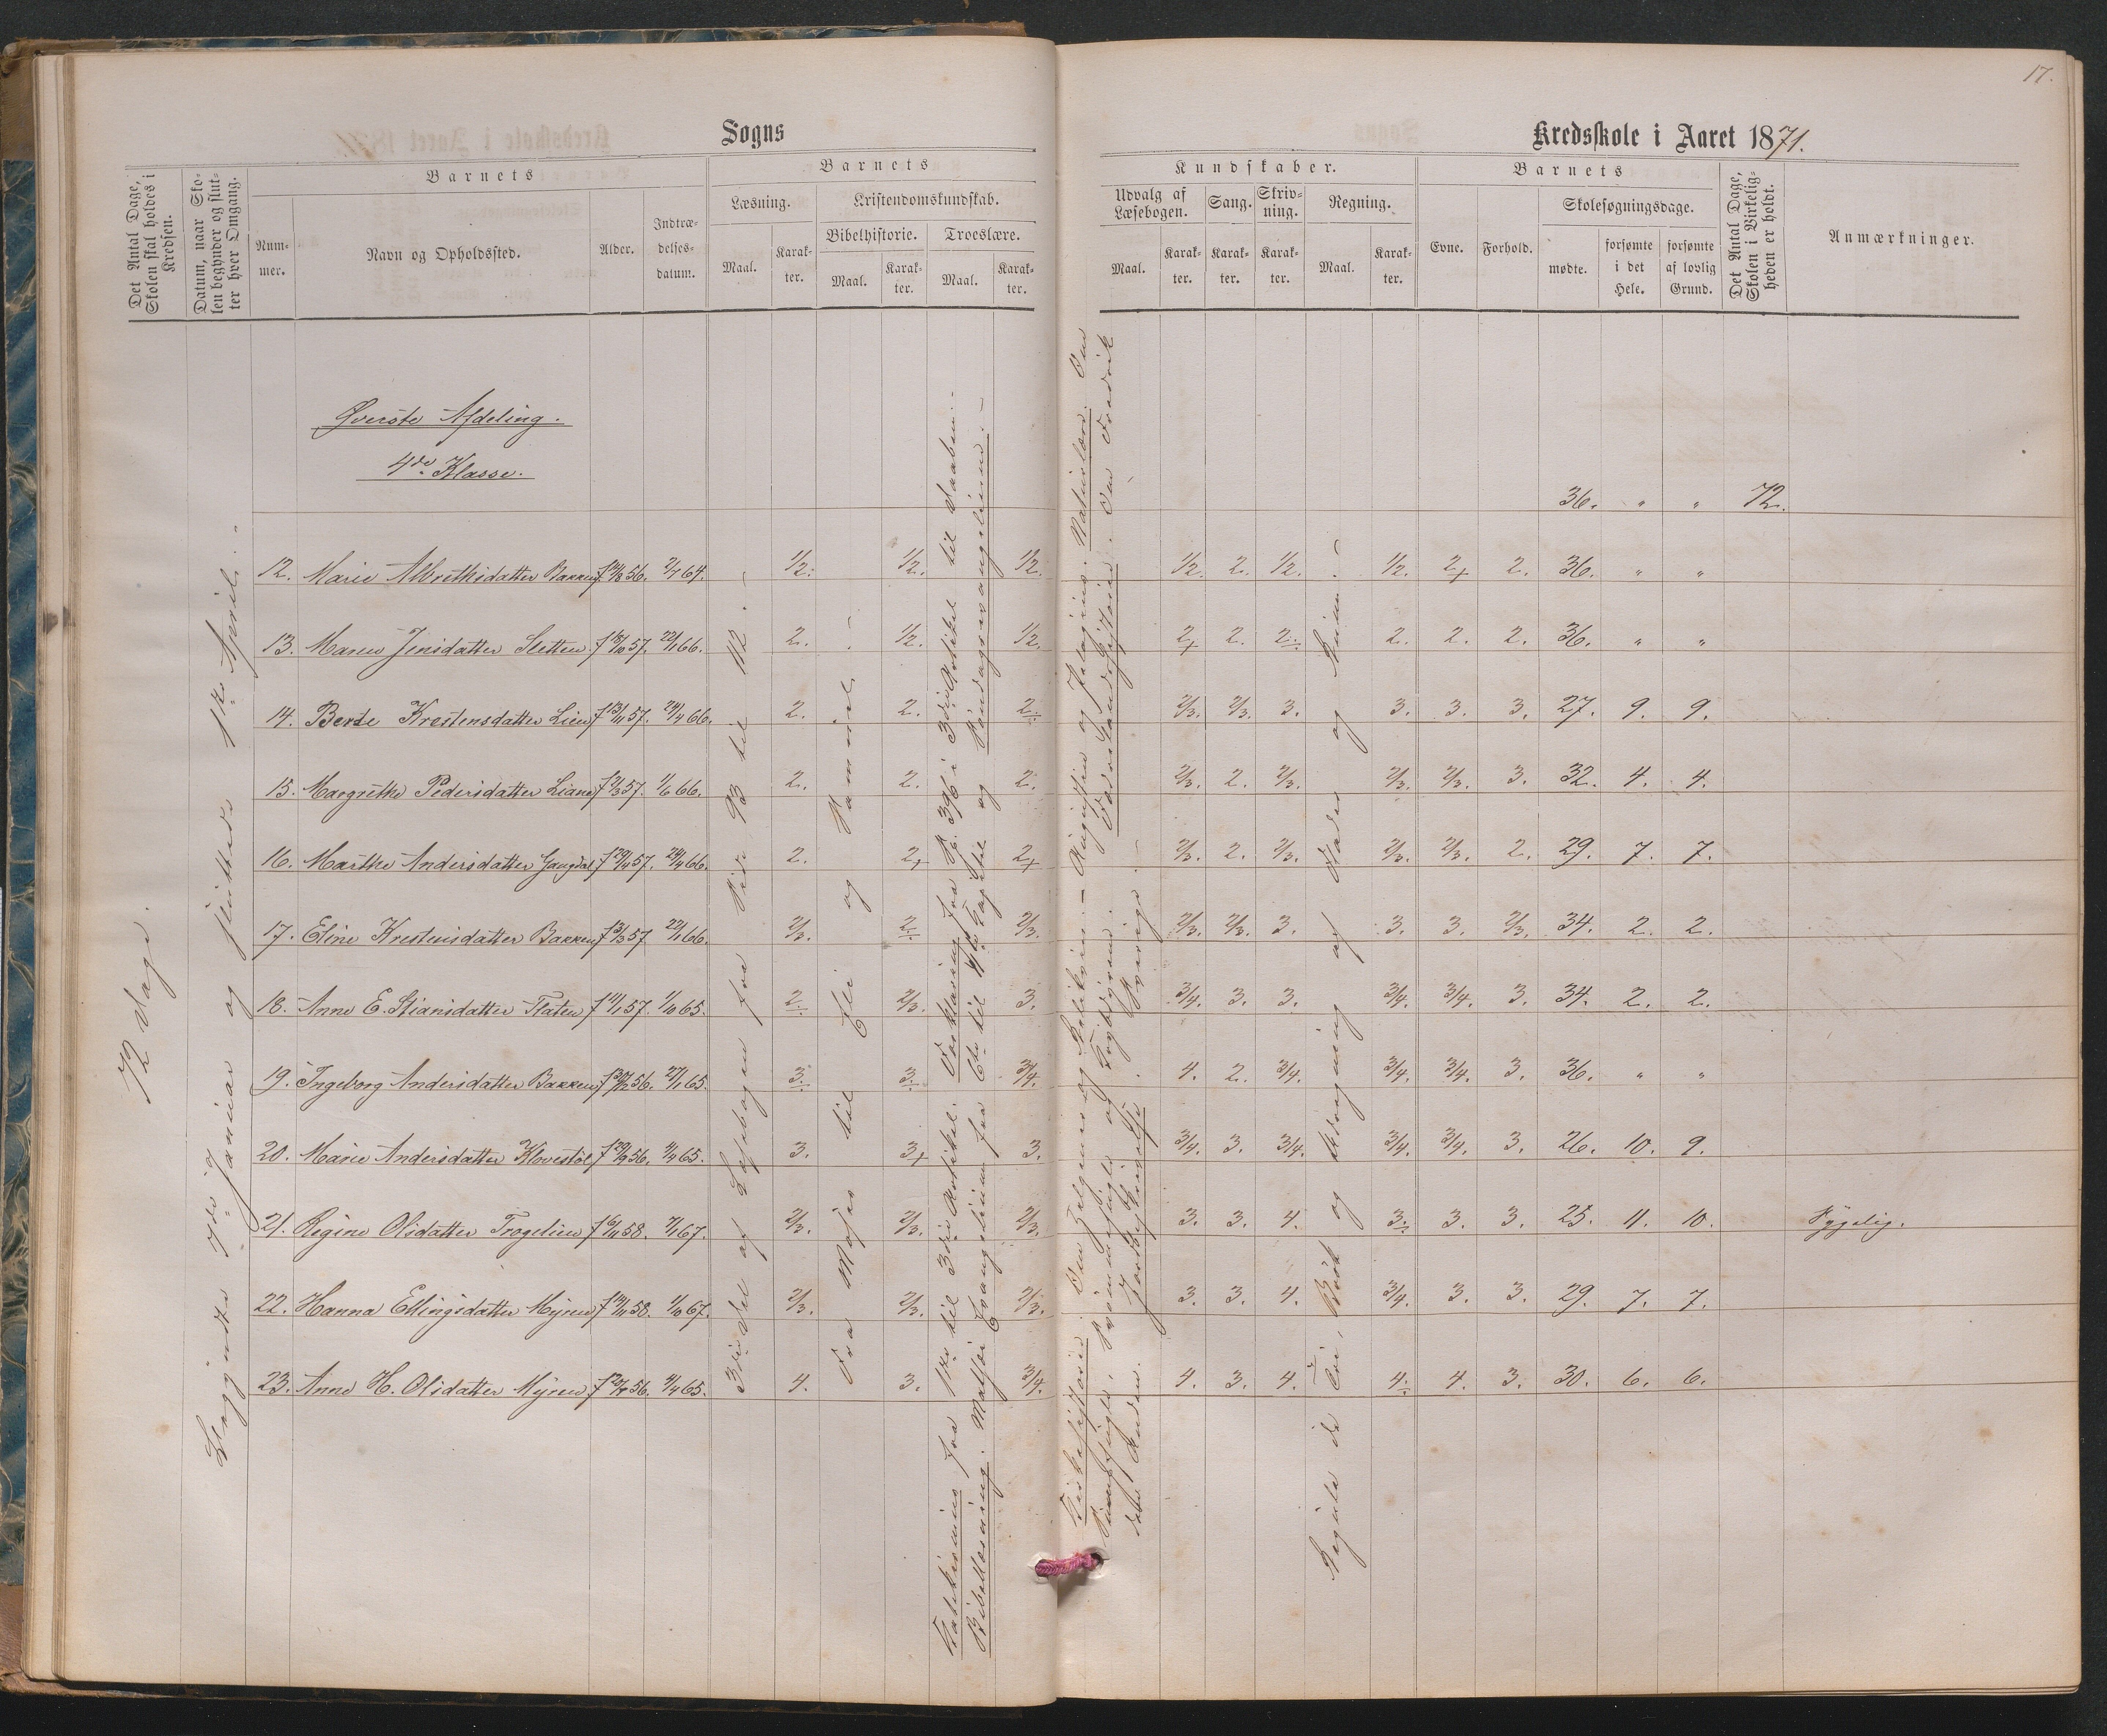 17.
Sogns
Kredsskole i Aaret 1871.
Det Antal Dage, Skolen skal holdes i Kredsen.
Datum, naar Skolen begynder og slutter hver Omgang.
Barnets
Nummer.
Navn og Opholdssted.
Alder.
Indtrædelsesdatum.
Barnets
Læsning.
Maal.
Karakter.
Kristendomskundskab.
Bibelhistorie.
Maal.
Karakter.
Troeslære.
Maal.
Karakter.
Kundskaber.
Udvalg af Læsebogen.
Maal.
Karakter.
Sang.
Karakter.
Skrivning.
Karakter.
Regning.
Maal.
Karakter.
Barnets
Evne.
Forhold.
Skolesøgningsdage.
mødte.
forsømte i det Hele.
forsømte af lovlig Grund.
Det Antal Dage, Skolen i Virkeligheden er holdt.
Anmærkninger.
72 Dage.
Begyndte 7de Januar og sluttede 1ste April.
Øverste Afdeling.
4de Klasse.
36. " " 72.
12. Marie Albrethsdatter Bakken f 14/8 56. 2/7 64. 1/2. 1/2. 1/2. 1/2. 2. 1/2. 1/2. 2+ 2. 36. " "
13. Maren Jensdatter Sletten f 18/10 57. 22/1 66. 2. 1/2. 1/2. 2+ 2. 2. 2. 2. 2. 36. " "
14. Berte Krestensdatter Lien f 13/11 57. 24/4 66. 2. 2. 2. 2/3. 2/3. 3. 3. 3. 3. 27. 9. 9.
15. Margrethe Pedersdatter Liane f 2/3 57. 1/6 66. 2. 2. 2. 2/3. 2. 2/3. 2/3. 2/3. 3. 32. 4. 4.
16. Marthe Andersdatter f 29/4 57. 24/4 66. 2. 2+ 2+ 2/3. 2. 2/3. 2/3. 2/3. 2. 29. 7. 7.
17. Eline Krestensdatter Bakken f 3/3 57. 22/1 66. 2/3. 2. 2/3. 2/3. 2/3. 3. 3. 3. 2/3. 34. 2. 2.
18. Anne E. Stiansdatter Flaten f 11/1 57. 1/10 65. 2. 2/3. 3. 3/4. 3. 3. 3/4. 3/4. 3. 34. 2. 2.
19. Ingeborg Andersdatter Bakken f 30/12 56. 27/1 65. 3. 3. 3/4. 4. 2. 3/4. 3/4. 3/4. 3. 36. " "
20. Marie Andersdatter Klovestøl f 29/9 56. 4/4 65. 3. 3+ 3. 3/4. 3. 3/4. 3/4. 3/4. 3. 26. 10. 9.
21. Regine Olsdatter Trogelien f 6/11 58. 7/1 67. 2/3. 2/3. 2/3. 3. 3. 4. 3. 3. 3. 25. 11. 10. Sygelig.
22. Hanna Ellingsdatter Myren f 14/11 58. 1/10 67. 2/3. 2/3. 2/3. 3. 3. 4. 3/4. 3. 3. 29. 7. 7.
23. Anne H. Olsdatter Myren f 25/7 56. 4/4 65. 4. 3. 3/4. 4. 3. 4. 4. 4. 3. 30. 6. 6.
3die Del af Læsebogen fra Side 93 til 112.
Fra Moses til Eli og Samuel.
Katekismus fra 1ste til 3die Artikel. Forklaring fra S. 396 i 3die Artikel til Daaben.
Bibellæsning. Matthæi Evangelium fra 6te til Kapitel og Søndagsevangelierne.
Kirkehistorie. Om Helgener og Relikvier. Augustin og Pelagius. Naturlære. Om
Svømmefugle og Krybdyrene. Fædrelandshistorie. Om Fredrik
den Anden. Jordbeskrivelse. Sverige.
Regula de Tri, Brøk og Udregning af Flader og Rum.